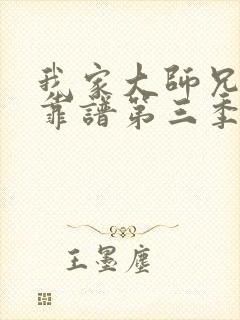 我家大師兄
靠譜第三季
王墨塵